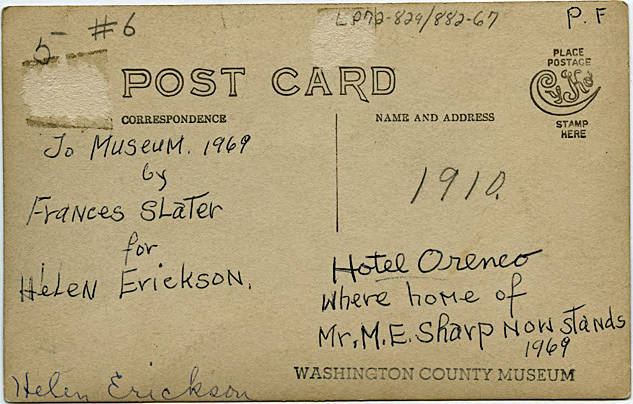 5- #6
LP72-829/882-67
P.F
POST CARD
PLACE
POSTAGE
CyKo
STAMP
HERE
CORRESPONDENCE
NAME AND ADDRESS
To Museum. 1969
by
Frances Slater
for
Helen Erickson.
1910.
Hotel Orenco
where home of
Mr. M.E. Sharp now stands
1969
WASHINGTON COUNTY MUSEUM
Helen Erickson